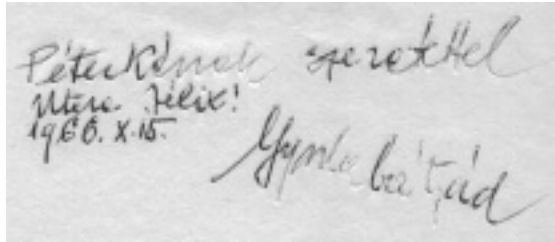 Péterkének szeretettel
Utere felix!
1966. X. 15.
Gyula bátyád